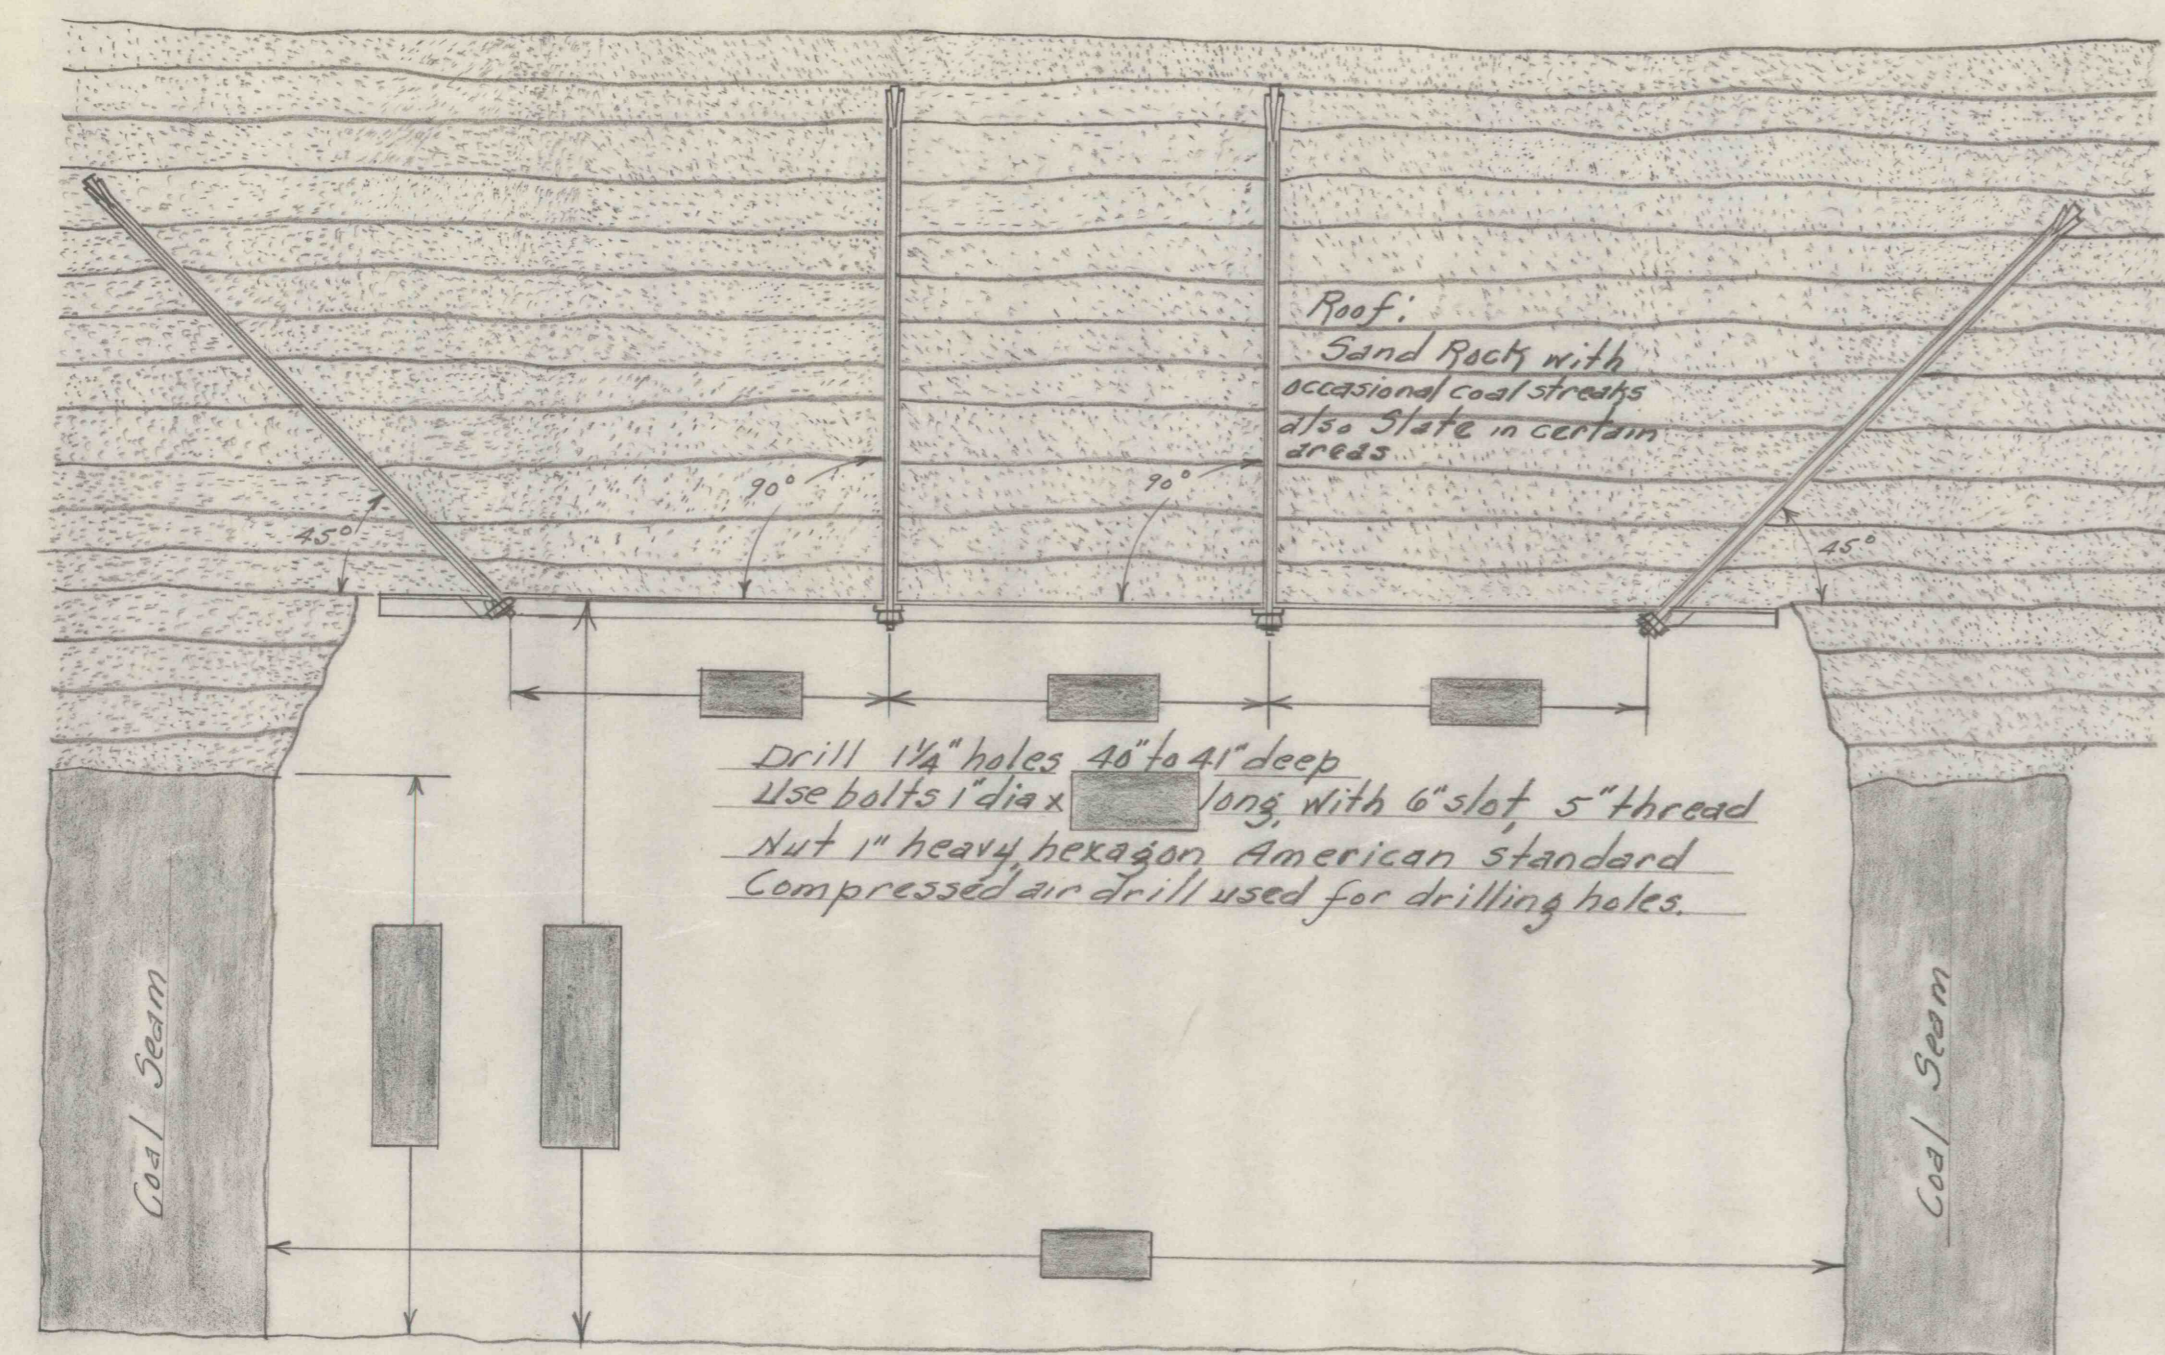 Roof:
Sand Rock with
occasional coal streaks
also Slate in certain
areas
90°
90°
45°
45°
Drill 1¼" holes 40" to 41" deep
Use bolts 1" dia x long, with 6" slot, 5" thread
Nut 1" heavy, hexagon American standard
Compressed air drill used for drilling holes.
Coal Seam
Coal Seam